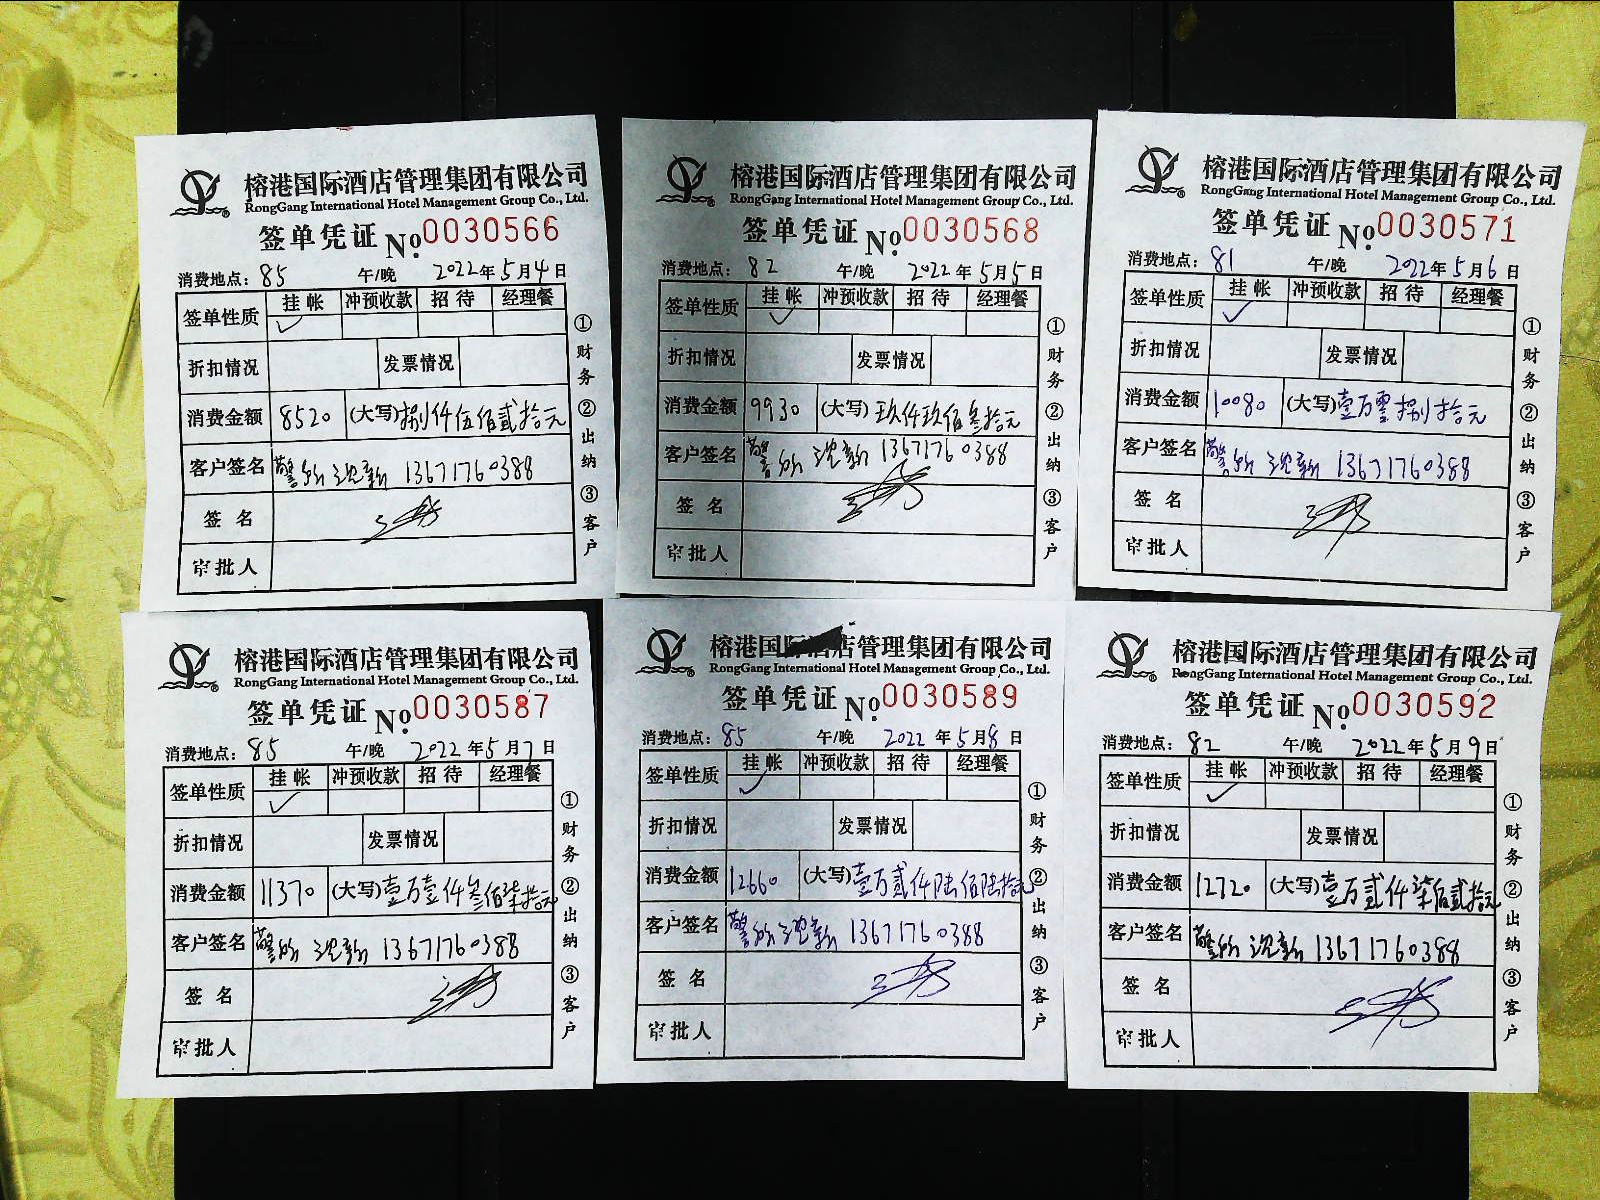 榕港国际酒店管理集团有限公司
RongGang International Hotel Management Group Co., Ltd.
签单凭证 No.0030566
消费地点：85 午/晚 2022年5月4日
签单性质 挂帐 冲预收款 招待 经理餐
✓
折扣情况 发票情况
消费金额 8520 (大写)捌仟伍佰贰拾元
客户签名 13671760388
签名
审批人
①财务②出纳③客户
榕港国际酒店管理集团有限公司
RongGang International Hotel Management Group Co., Ltd.
签单凭证 No.0030568
消费地点：82 午/晚 2022年5月5日
签单性质 挂帐 冲预收款 招待 经理餐
✓
折扣情况 发票情况
消费金额 9930 (大写)玖仟玖佰叁拾元
客户签名 13671760388
签名
审批人
①财务②出纳③客户
榕港国际酒店管理集团有限公司
RongGang International Hotel Management Group Co., Ltd.
签单凭证 No.0030571
消费地点：81 午/晚 2022年5月6日
签单性质 挂帐 冲预收款 招待 经理餐
✓
折扣情况 发票情况
消费金额 10080 (大写)壹万零捌拾元
客户签名 13671760388
签名
审批人
①财务②出纳③客户
榕港国际酒店管理集团有限公司
RongGang International Hotel Management Group Co., Ltd.
签单凭证 No.0030587
消费地点：85 午/晚 2022年5月7日
签单性质 挂帐 冲预收款 招待 经理餐
✓
折扣情况 发票情况
消费金额 11370 (大写)壹万壹仟叁佰柒拾元
客户签名 13671760388
签名
审批人
①财务②出纳③客户
榕港国际酒店管理集团有限公司
RongGang International Hotel Management Group Co., Ltd.
签单凭证 No.0030589
消费地点：85 午/晚 2022年5月8日
签单性质 挂帐 冲预收款 招待 经理餐
✓
折扣情况 发票情况
消费金额 12660 (大写)壹万贰仟陆佰陆拾元
客户签名 13671760388
签名
审批人
①财务②出纳③客户
榕港国际酒店管理集团有限公司
RongGang International Hotel Management Group Co., Ltd.
签单凭证 No.0030592
消费地点：82 午/晚 2022年5月9日
签单性质 挂帐 冲预收款 招待 经理餐
✓
折扣情况 发票情况
消费金额 12720 (大写)壹万贰仟柒佰贰拾元
客户签名 13671760388
签名
审批人
①财务②出纳③客户